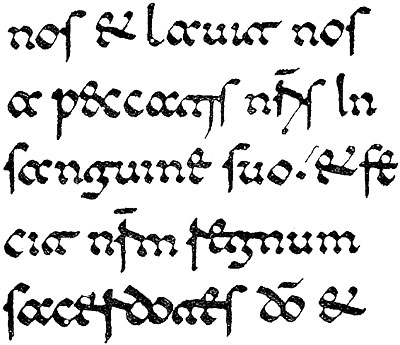 nos & lauit nos
a peccatis nr̄is In
sanguine suo. & fe
cit nr̄m regnum
sacerdotes dō &